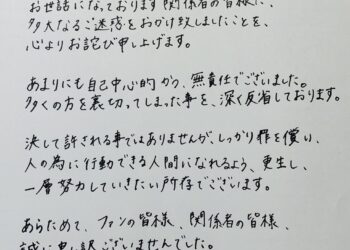 お世話になっております関係者の皆様に、
多大なるご迷惑をおかけ致しましたことを、
心よりお詫び申し上げます。
あまりにも自己中心的かつ、無責任でございました。
多くの方を裏切ってしまった事を、深く反省しております。
決して許される事ではありませんが、しっかり罪を償い、
人の為に行動できる人間になれるよう、更生し、
一層努力していきたい所存でございます。
あらためて、ファンの皆様、関係者の皆様、
誠に申し訳ございませんでした。